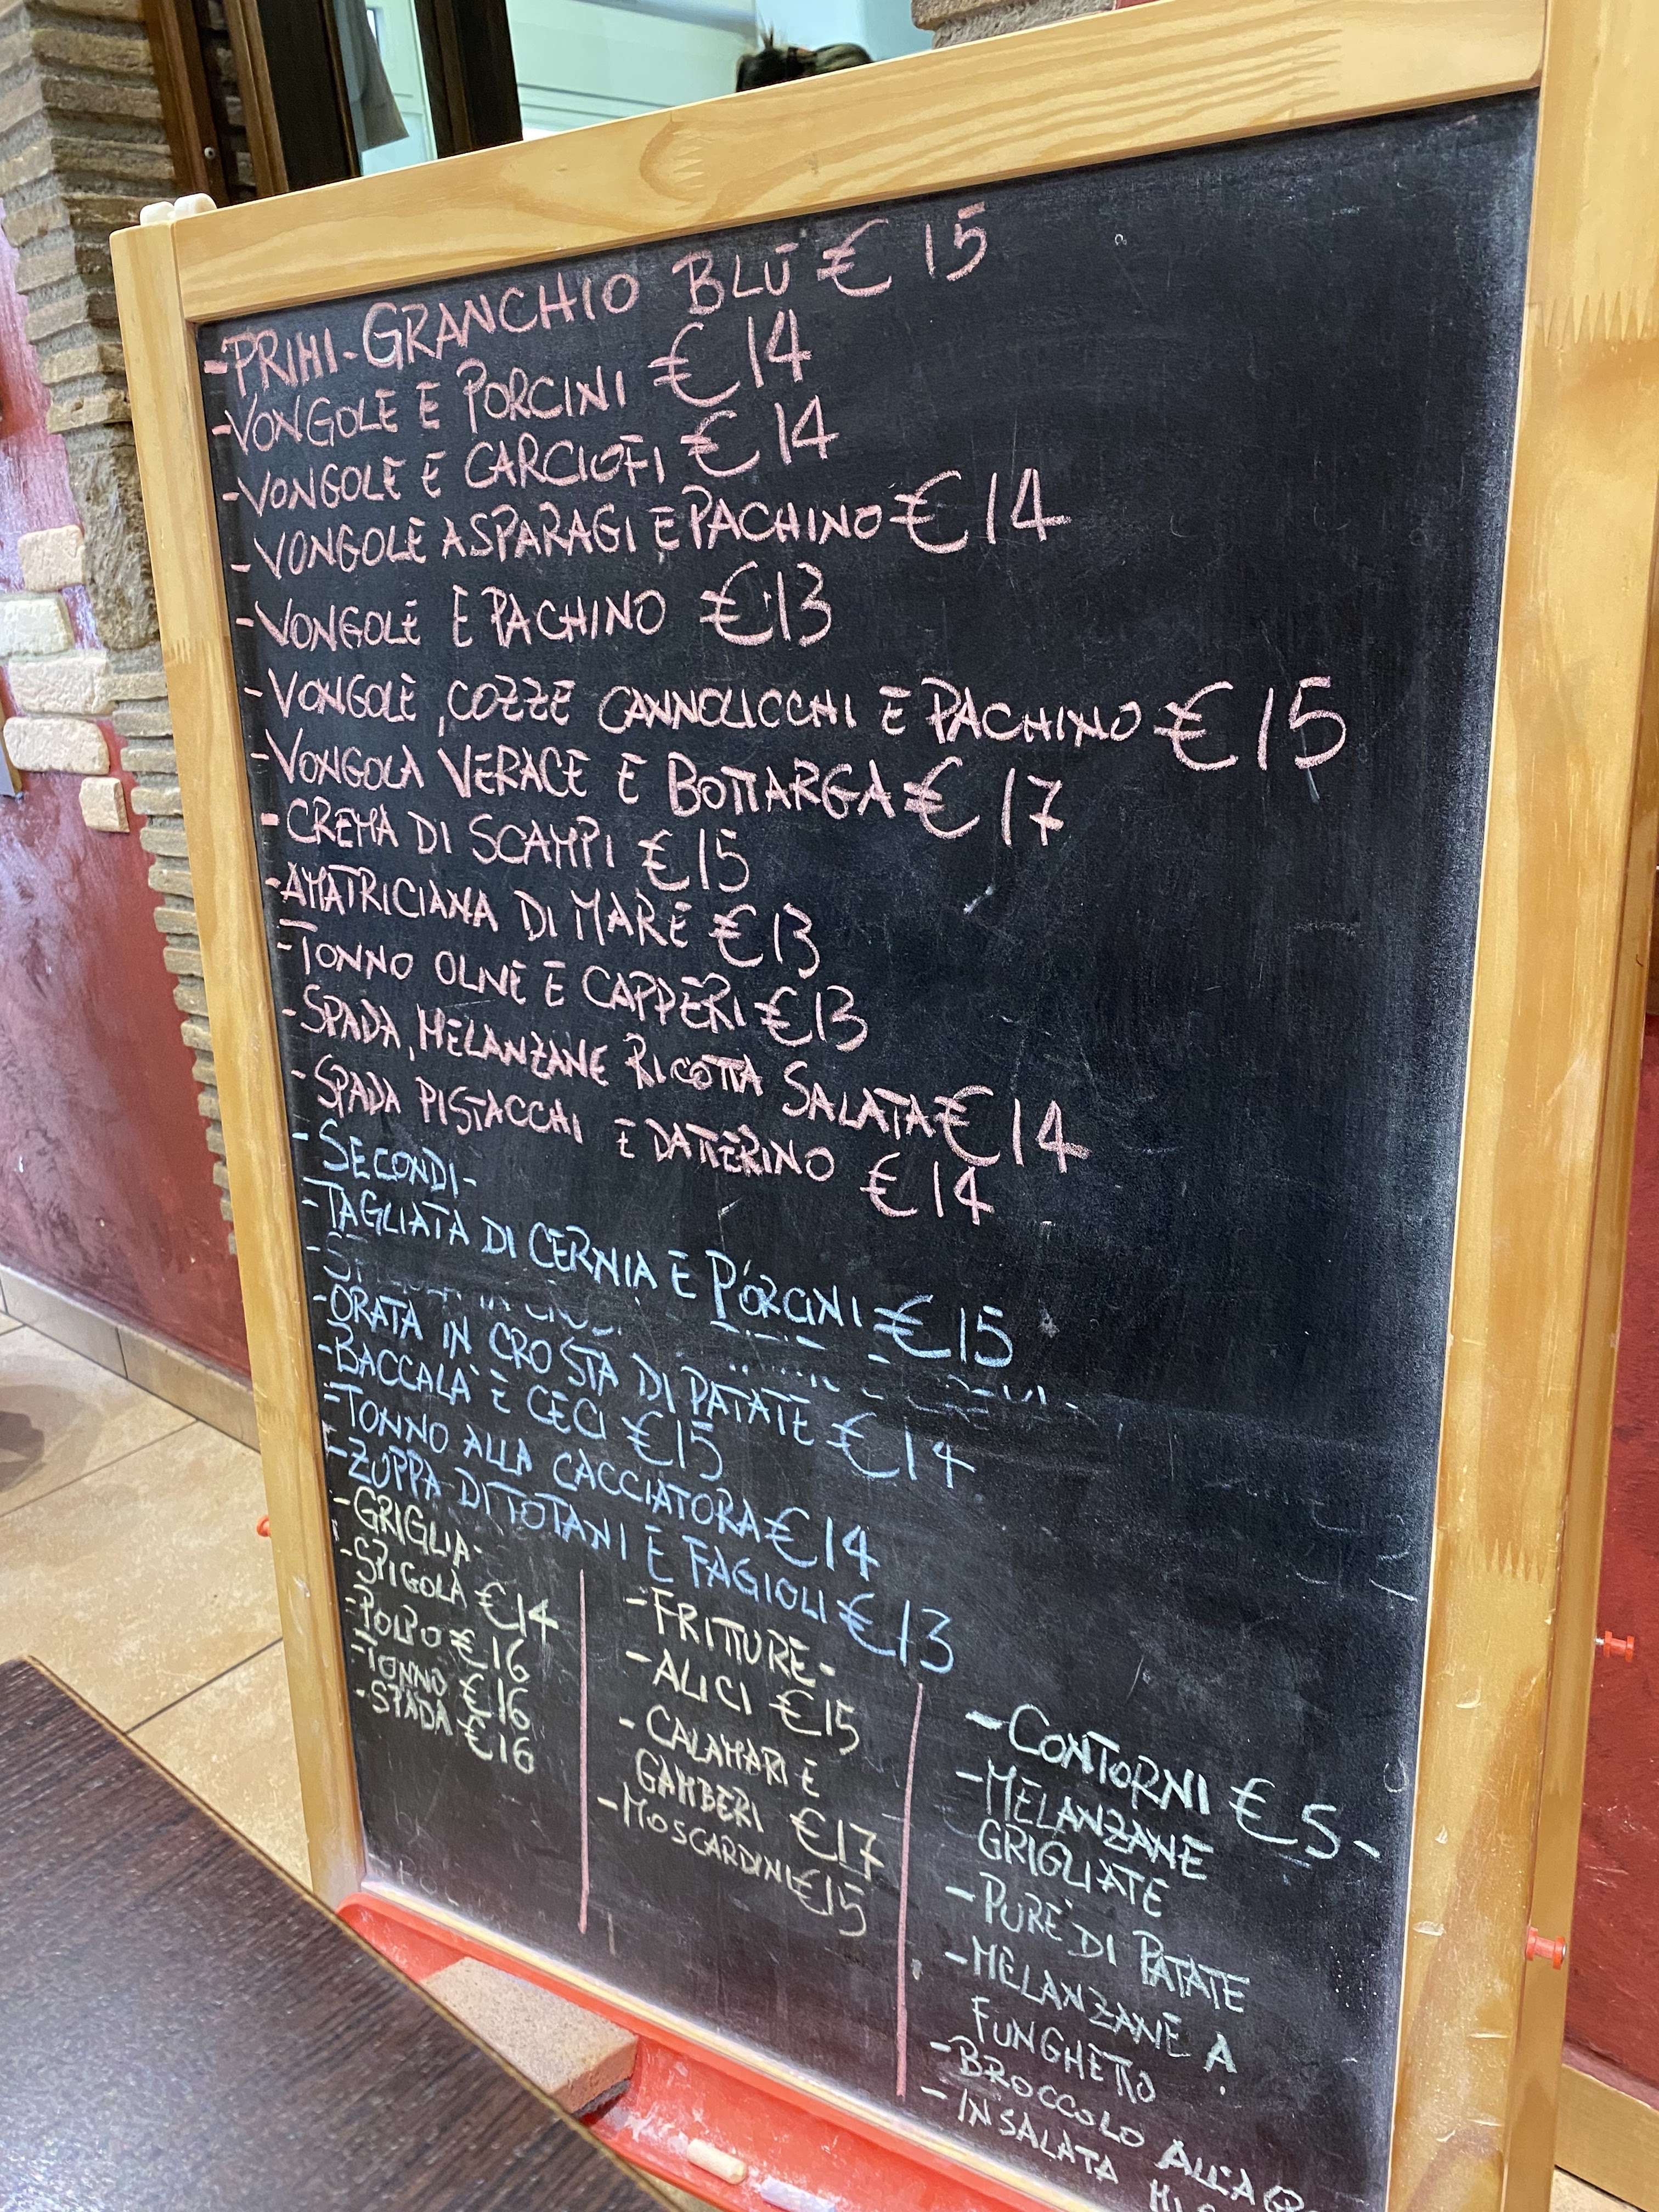 -PRIMI-GRANCHIO BLÙ € 15
-VONGOLE E PORCINI € 14
-VONGOLE E CARCIOFI € 14
-VONGOLE ASPARAGI E PACHINO € 14
-VONGOLE E PACHINO € 13
-VONGOLE, COZZE CANNOLICCHI E PACHINO € 15
-VONGOLA VERACE E BOTTARGA € 17
-CREMA DI SCAMPI € 15
-AMATRICIANA DI MARE € 13
-TONNO OLIVE E CAPPERI € 13
-SPADA, MELANZANE RICOTTA SALATA € 14
-SPADA PISTACCHI E DATTERINO € 14
-SECONDI-
-TAGLIATA DI CERNIA E PORCINI € 15
-ORATA IN CROSTA DI PATATE € 14
-BACCALÀ E CECI € 15
-TONNO ALLA CACCIATORA € 14
-ZUPPA DI TOTANI E FAGIOLI € 13
-GRIGLIA-
-SPIGOLA € 14
-POLPO € 16
-TONNO € 16
-SPADA € 16
-FRITTURE-
-ALICI € 15
-CALAMARI E
GAMBERI € 17
-MOSCARDINI € 15
-CONTORNI € 5-
-MELANZANE
GRIGLIATE
-PURÈ DI PATATE
-MELANZANE A
FUNGHETTO
-BROCCOLO ALLA
-INSALATA